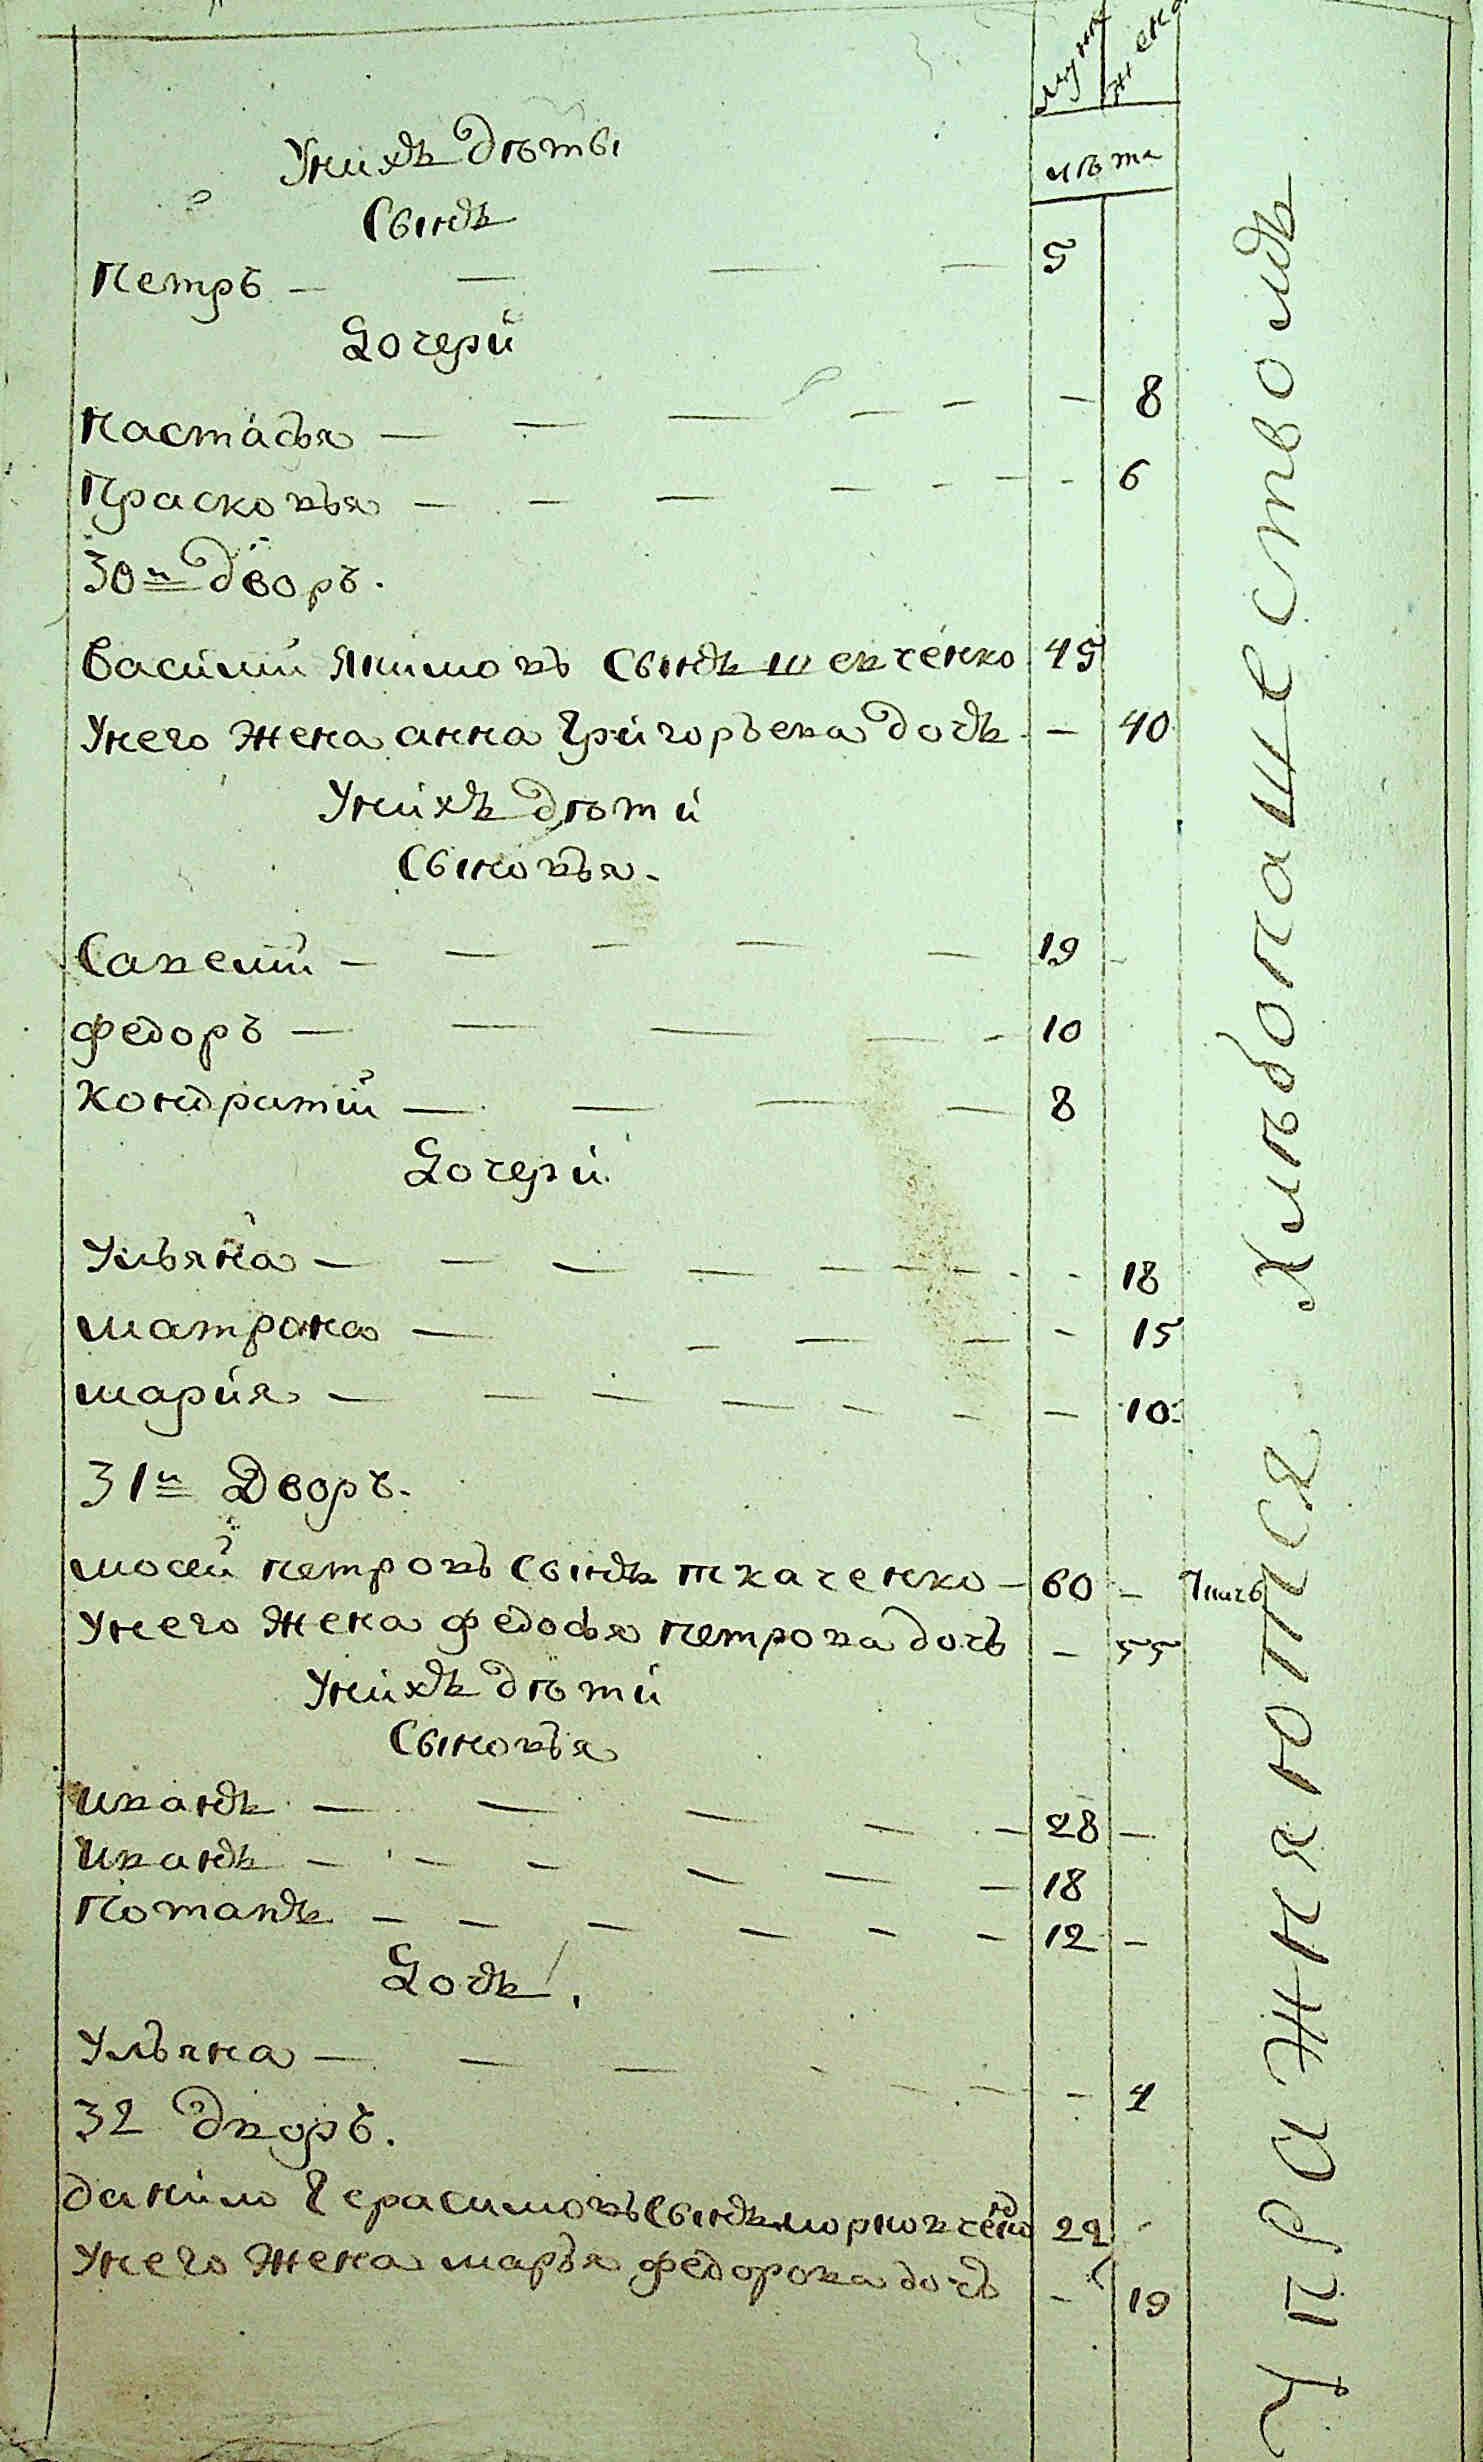 муж женс
лѣта
У нихъ дѣты
Сынъ
Петръ — — — — 5
Дочери
Настасья — — — — — — 8
Прасковья — — — — — — — 6
30й дворъ.
Василий Якимовъ сынъ Шевченко 45
У него жена Анна Григорьева дочь — 40
У нихъ дѣти
Сыновья.
Савелий — — — — — 19 -
Федоръ — — — — - 10
Кондратий — — — — 8
Дочери.
Ульяна — — — — — — — - 18
Матрона — — — — - 15
Мария — — — — — — — 10
31й Дворъ.
Мосей Петровъ сынъ Ткаченко — 60 —
У него жена Федосья Петрова дочь — 55
У нихъ дѣти
Сыновья
Иванъ — — — — — 28 —
Иванъ — — — — — — 18
Потапъ — — — — — — 12 —
Дочь.
Ульяна — — — — — — — 4
32 дворъ.
Данило Герасимовъ сынъ 22 -
У него жена Марья Федорова дочь — 19
Упражняются хлѣбопашествомъ